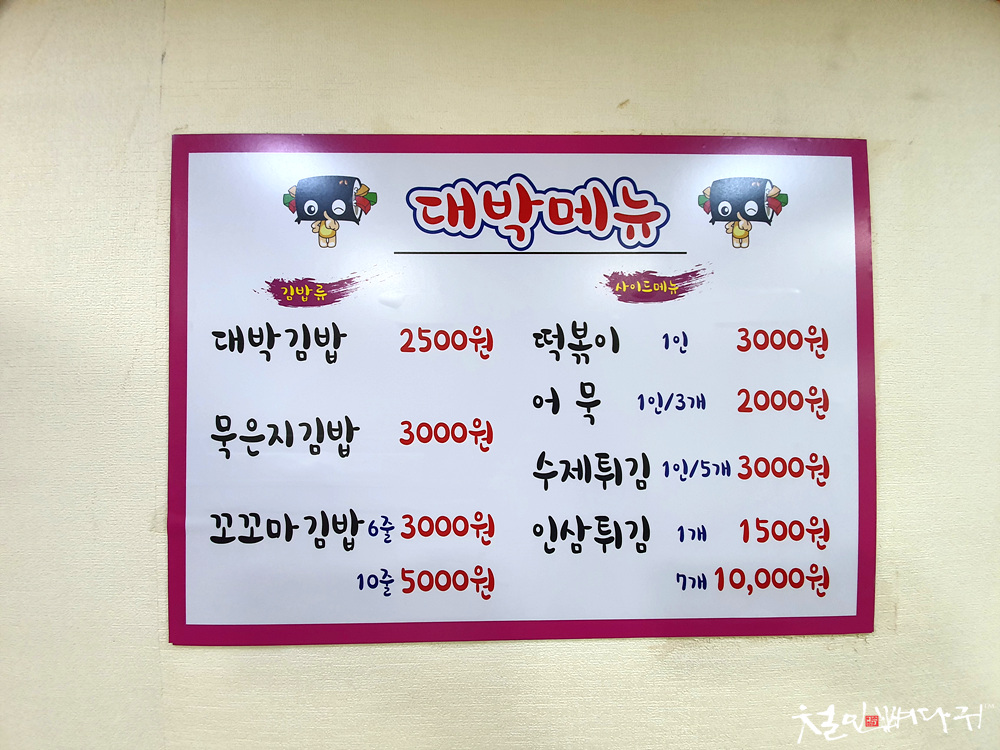 대박메뉴
김밥류
대박김밥 2500원
묵은지김밥 3000원
꼬꼬마김밥 6줄 3000원
10줄 5000원
사이드메뉴
떡볶이 1인 3000원
어묵 1인/3개 2000원
수제튀김 1인/5개 3000원
인삼튀김 1개 1500원
7개 10,000원
철인뼈다귀